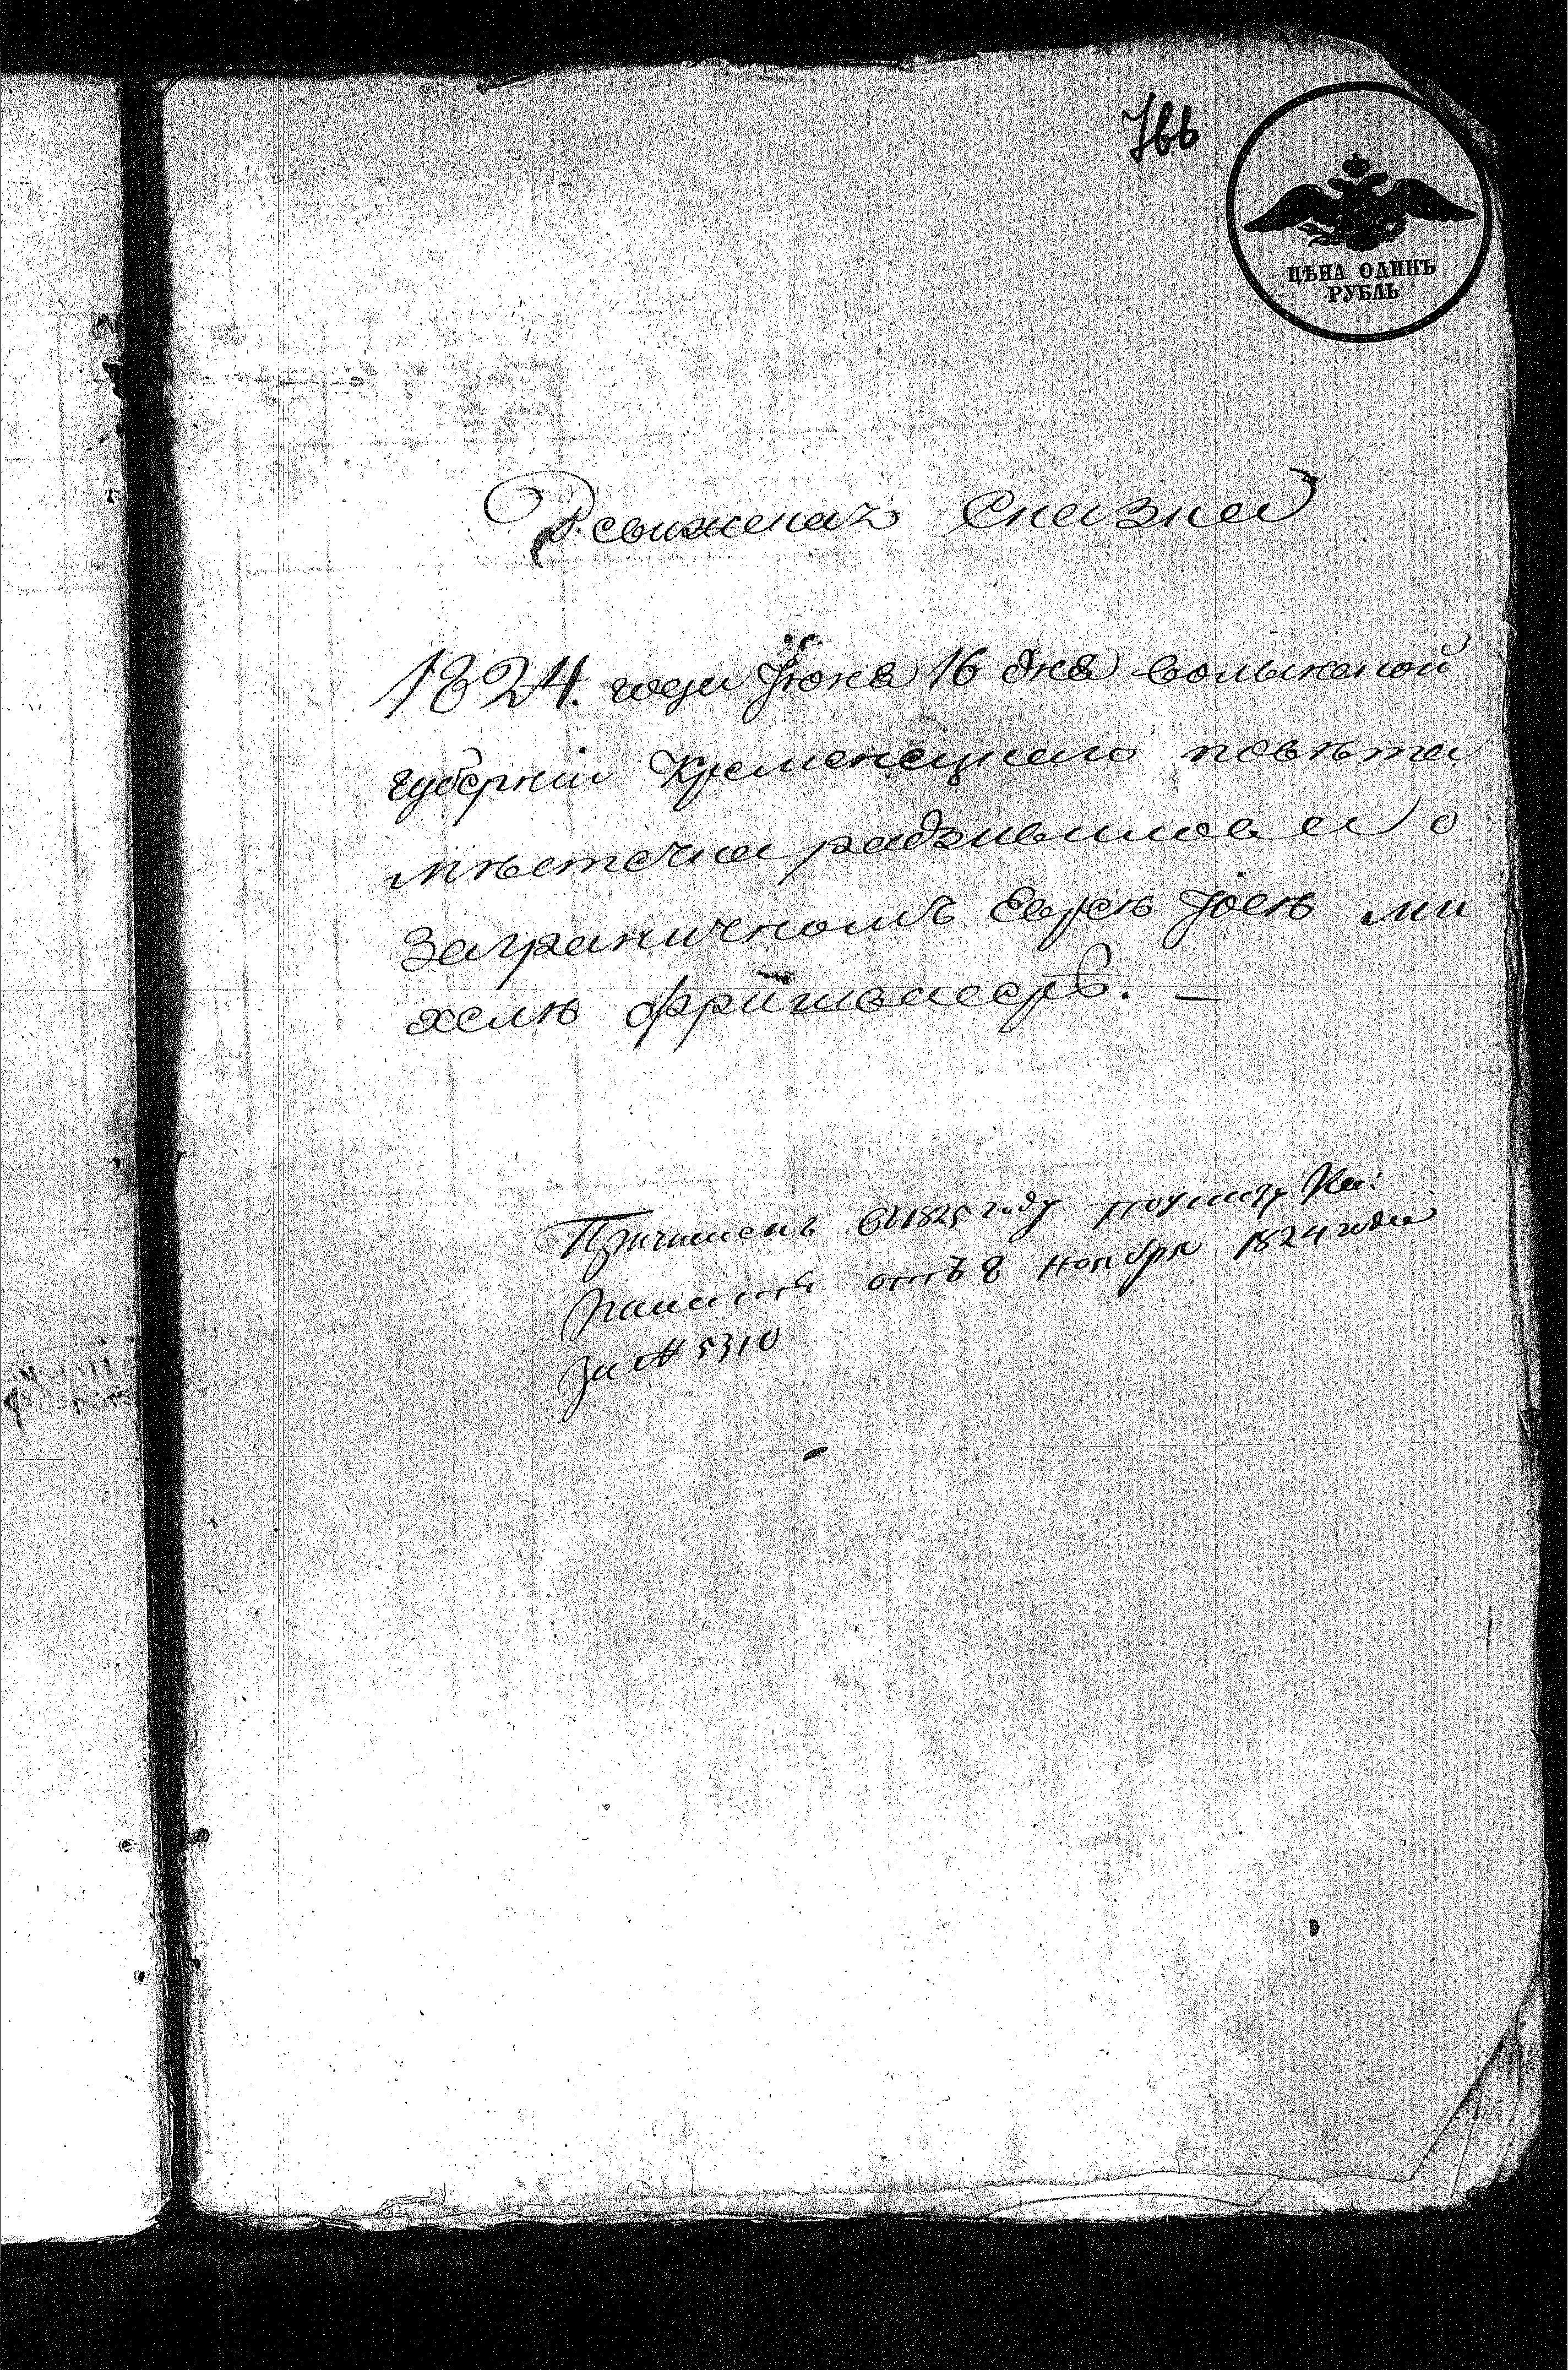 766
ЦѢНА ОДИНЪ
РУБЛЬ
Ревижская Сказка
1824. года Іюня 16 дня волынской
губерніи Кременецкаго повѣта
мѣстечка радзивилова о
Заграничномъ Евреѣ Иосѣ ми
хелѣ
Причисленъ въ 1825 году по указу Ка:
Палаты отъ 8 Ноября 1824 года
За № 5310